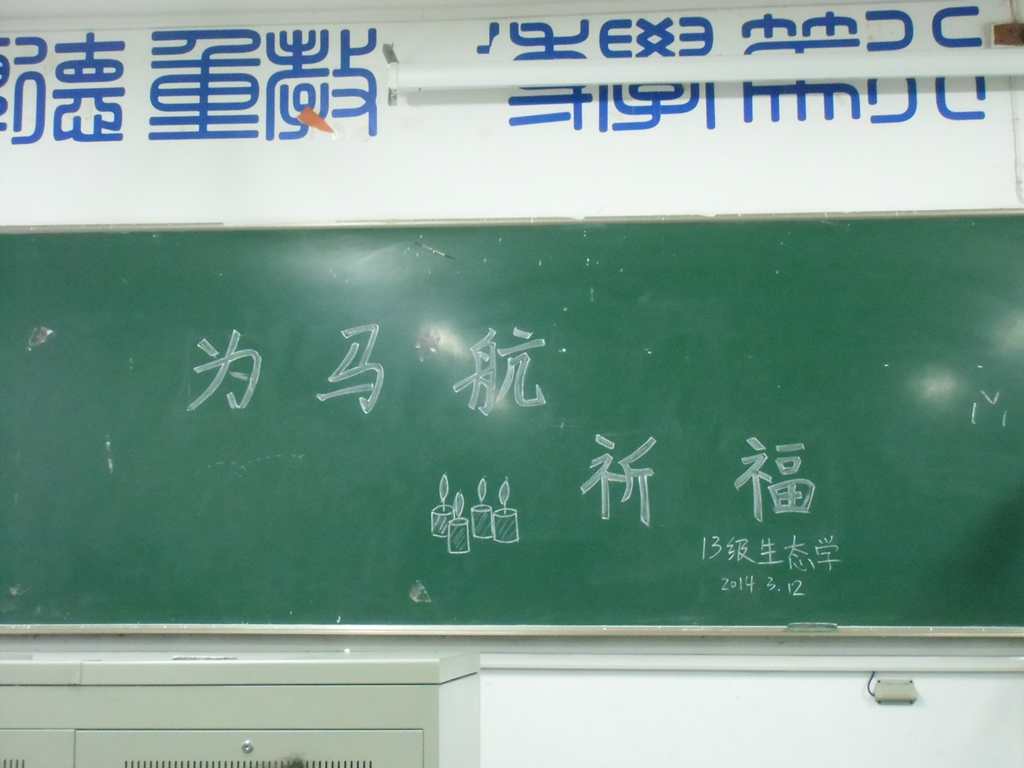 德重教 學篤行
为马航
祈福
13级生态学
2014.3.12